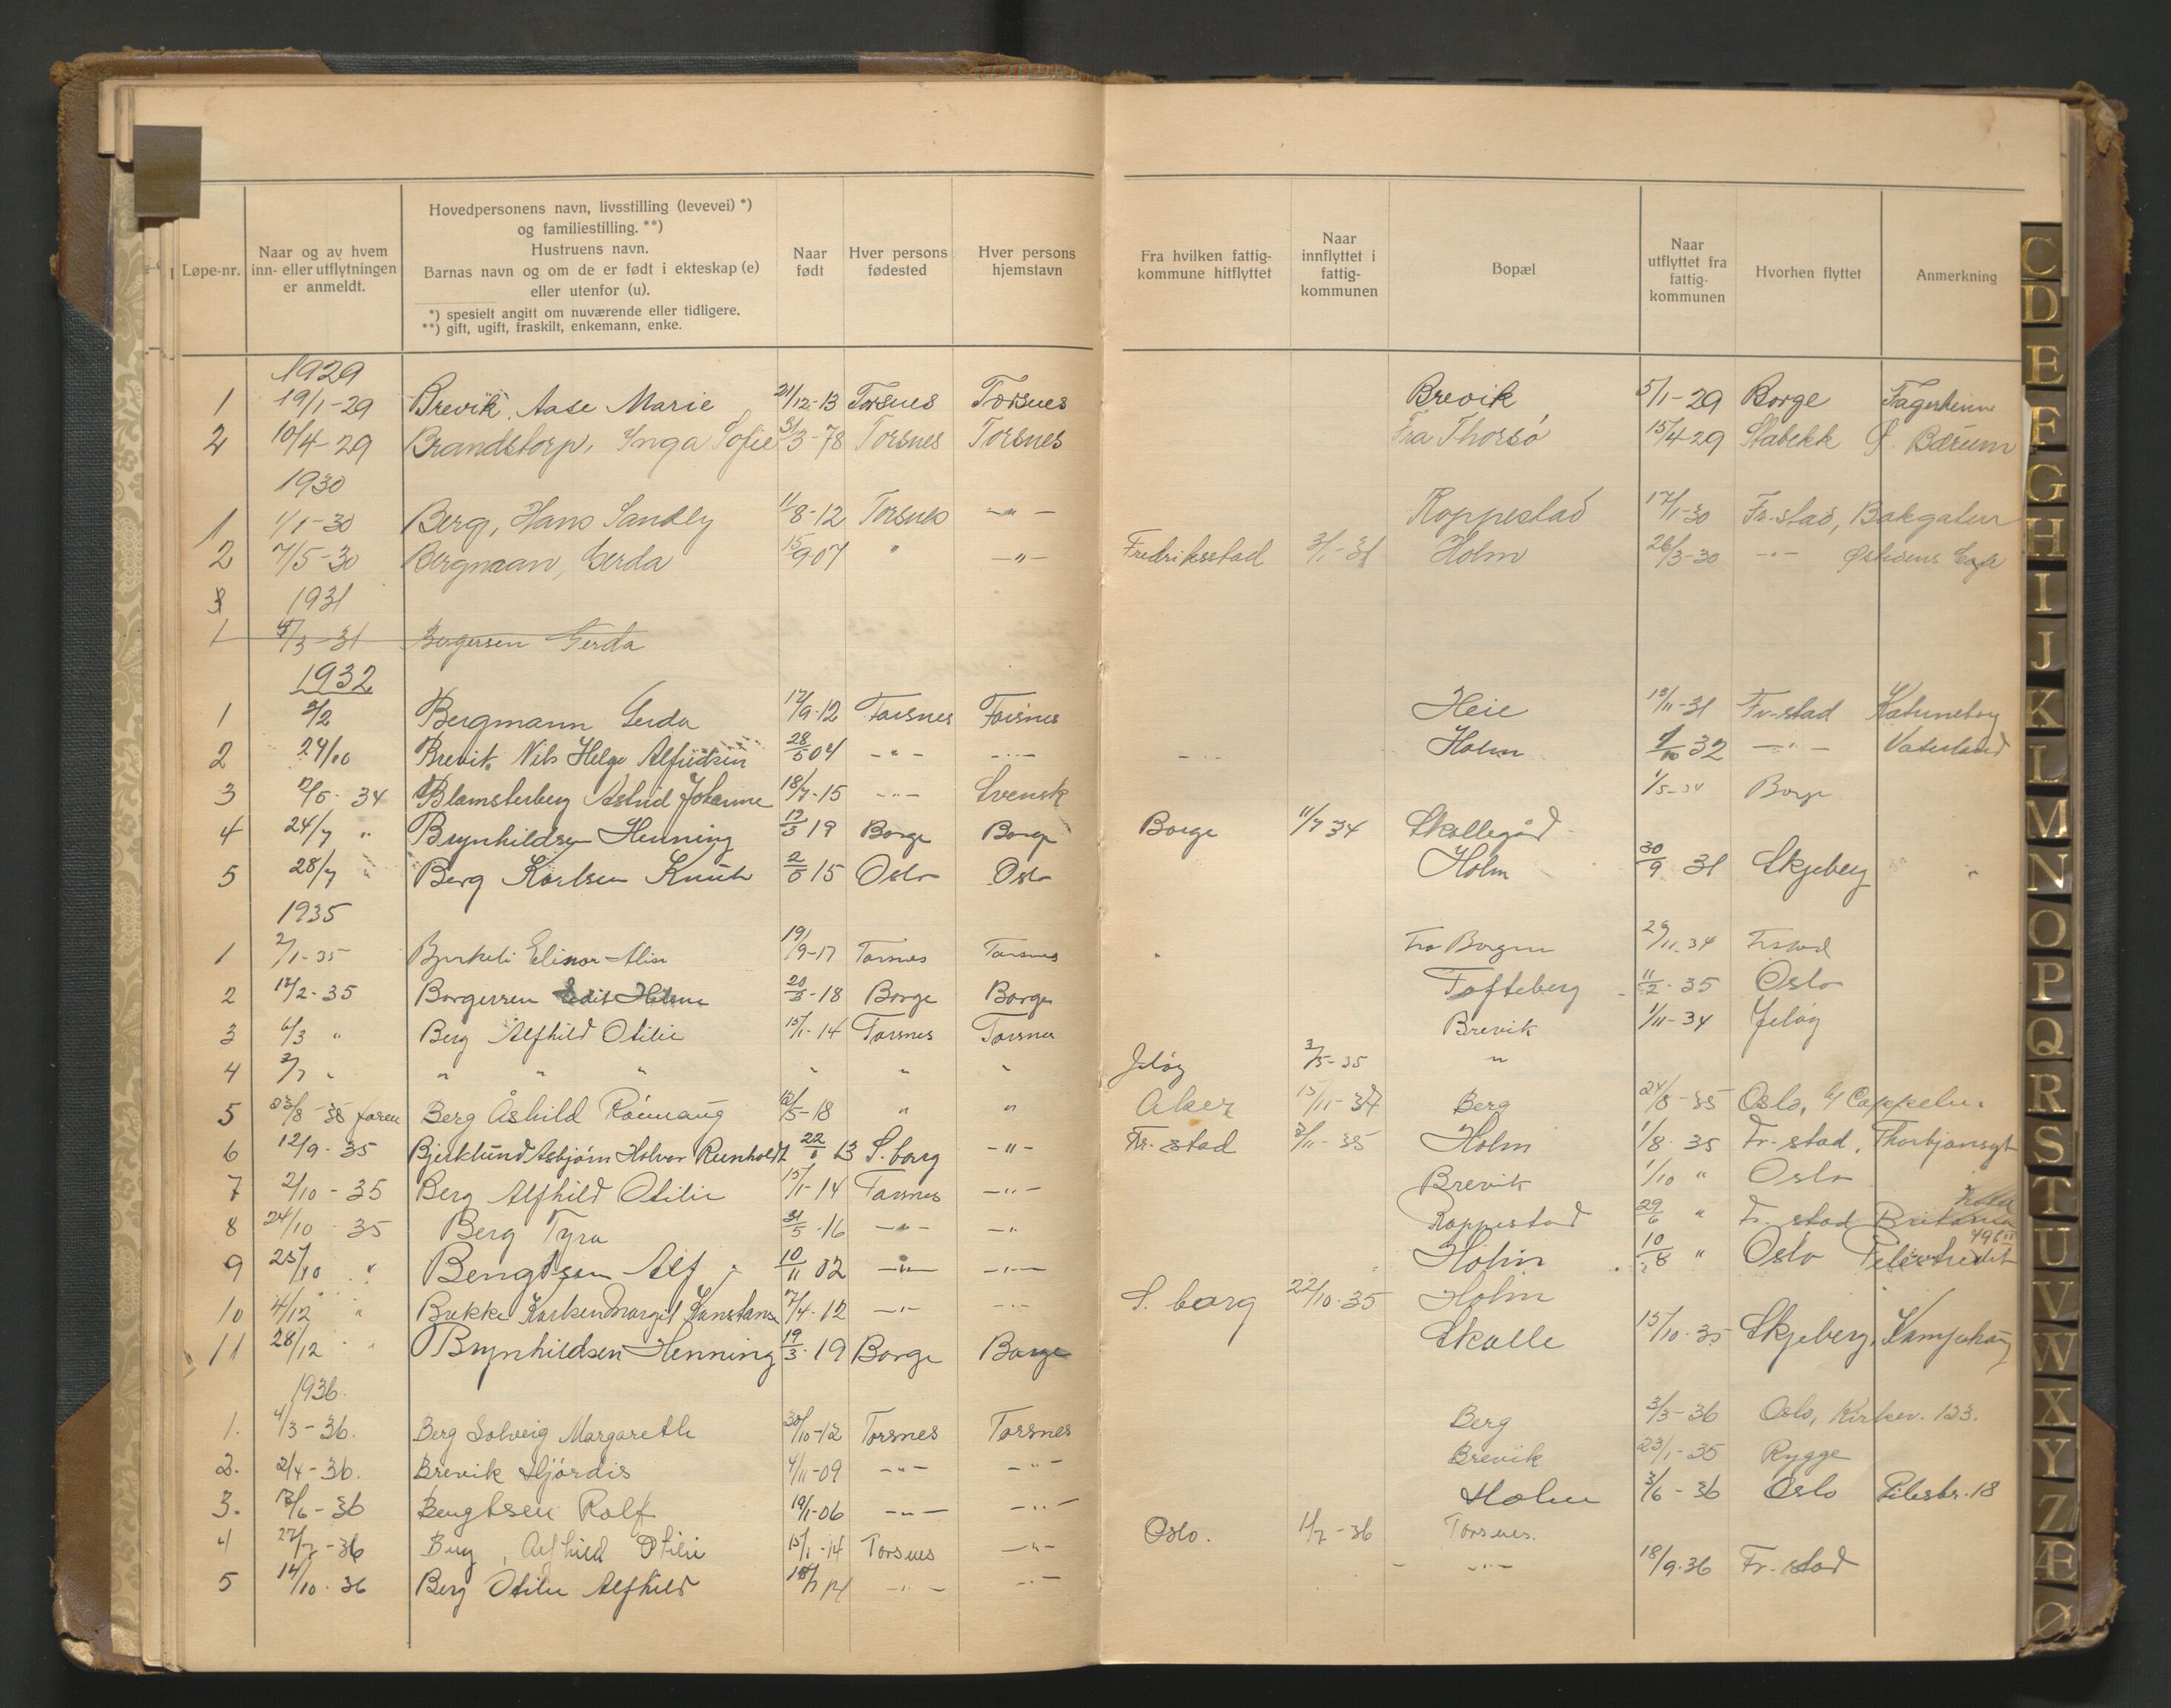 Løpe-nr.
Naar og av hvem
inn- eller utflytningen
er anmeldt.
Hovedpersonens navn, livsstilling (levevei) *)
og familiestilling. **)
Hustruens navn.
Barnas navn og om de er født i ekteskap (e)
eller utenfor (u).
*) spesielt angitt om nuværende eller tidligere.
**) gift, ugift, fraskilt, enkemann, enke.
Naar
født
Hver persons
fødested
Hver persons
hjemstavn
Fra hvilken fattig-
kommune hitflyttet
Naar
innflyttet i
fattig-
kommunen
Bopæl
Naar
utflyttet fra
fattig-
kommunen
Hvorhen flyttet
Anmerkning
1929
1 19/1-29 Brevik, Aase Marie 21/12-13 Torsnes Torsnes Brevik 5/1-29 Borge
2 10/4-29 Brandstorp, Inga Sofie 31/3-78 Torsnes Torsnes Fra Thorsø 15/4-29 Stabekk Bærum
1930
1 1/1-30 Berg, Hans Sandly 11/8-12 Torsnes -"- Roppestad 17/1-30 Fr.stad, Bakgaten
2 7/5-30 Bergmann, Gerda 15/9-07 " -"- Fredriksstad 3/1-31 Holm 26/3-30 -"-
3 1931
1 /3-31 Borgersen Gerda
1932
1 3/2 Bergmann Gerda 17/9-12 Torsnes Torsnes Heie 13/11-31 Fr-stad
2 24/10 Brevik Nils Helge Alfredsen 28/5 04 -"- -"- -"- Holm /10 32 -"- Vaterland
3 2/5-34 Blomsterberg Astrid Johanne 18/7-15 -"- Svensk 1/5-34 Borge
4 24/7 " Brynhildsen Henning 19/3 19 Borge Borge Borge 11/7 34 Skollegård
5 28/7 " Berg Karlsen Knut 2/5 15 Oslo Oslo Holm 30/9 31 Skjeberg "
1935
1 2/1-35 Bjerkeli Elinor Alise 19/9-17 Torsnes Torsnes Fra Borgen 29/11-34 Frstad
2 12/2-35 Borgersen Edit Helene 20/3-18 Borge Borge Tofteberg 11/2-35 Oslo
3 6/3 " Berg Alfhild Otilie 15/1-14 Torsnes Torsnes Brevik 1/11-34 Jeløy
4 3/7 " " " " " " " Jeløy 3/5-35 "
5 23/8-35 faren Berg Åshild Rönnaug /5-18 " " Aker 15/11-34 Berg 24/8-35 Oslo, Cappelen.
6 12/9-35 Bjerklund Asbjørn Halvor Reinholdt 22/ 13 S. borg -"- Fr. stad 3/11-35 Holm 1/8-35 Fr-stad, Thorbjørnsgt
7 2/10-35 Berg Alfhild Otilie 15/1-14 Torsnes -"- Brevik 1/10 " Oslo
8 24/10-35 Berg Tyra 31/5-16 -"- -"- Roppestad 29/6 " Fr. stad Britania
9 25/10 " Bengtsen Alf 10/11 02 -"- -"- Holm 10/8 " Oslo Pilestredet 49
10 4/12 " Bakke Karlsen Margit Konstanse 7/4-12 -"- -"- S. borg 22/10-35 Holm
11 28/12 " Brynhildsen Henning 19/3-19 Borge Borge Skolle 15/10-35 Skjeberg,
1936.
1. 4/3-36. Berg Solveig Margarethe 30/10-12 Torsnes Torsnes Berg 3/3-36 Oslo, Kirkev. 123.
2. 2/4-36. Brevik Hjördis 4/11-09 -"- -"- Brevik 23/1-35 Rygge
3. /6-36 Bengtsen Rolf 19/1-06 -"- -"- Holm 3/6-36 Oslo Pilestr. 18
4 27/7-36 Berg, Alfhild Otilie 15/1-14 Torsnes -"- Oslo. 1/7-36 Torsnes.
5 14/10-36 Berg Otilie Alfhild 15/1 14 -"- -"- -"- 18/9-36 Fr.stad
C
D
E
F
G
H
I
J
K
L
M
N
O
P
Q
R
S
T
U
V
W
X
Y
Z
Æ
Ø